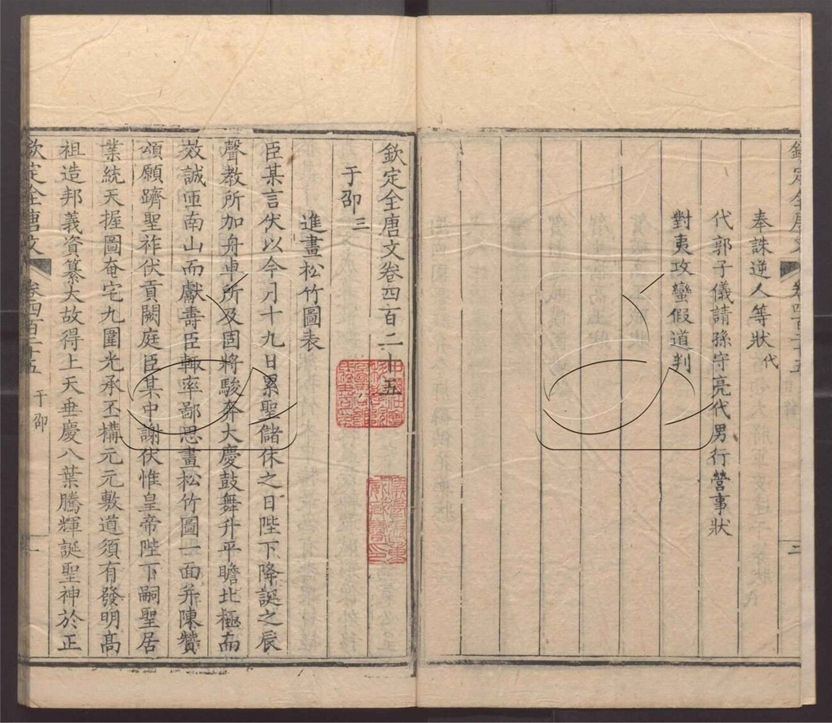 欽定全唐文
奉誅逆人等狀代
代郭子儀請孫守亮代男行營事狀
對夷攻蠻假道判
欽定全唐文卷四百二十五
于邵三
進畫松竹圖表
臣某言伏以今月十九日累聖儲休之日陛下降誕之辰
聲教所加舟車所及固將駿奔大慶鼓舞升平瞻北極而
效誠面南山而獻壽臣輒率鄙思畫松竹圖一面并陳贊
頌願躋聖祚伏貢闕庭臣某中謝伏惟皇帝陛下嗣聖居
業統天握圖奄宅九圍光承丕構元元敷道須有發明高
祖造邦義資纂大故得上天垂慶八葉騰輝誕聖神於正
欽定全唐文 卷四百二十五 于邵 一